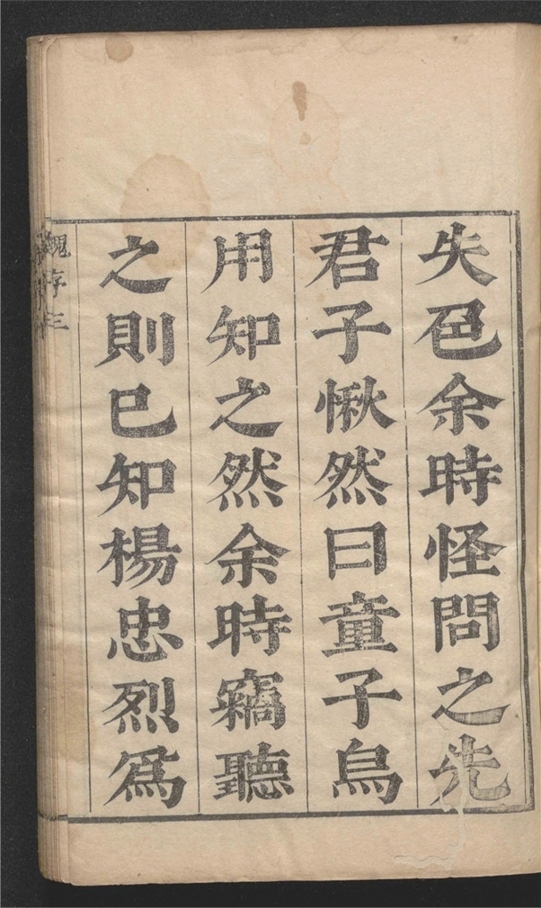 失色余時怪問之先
君子愀然曰童子烏
用知之然余時竊聽
之則已知楊忠烈爲